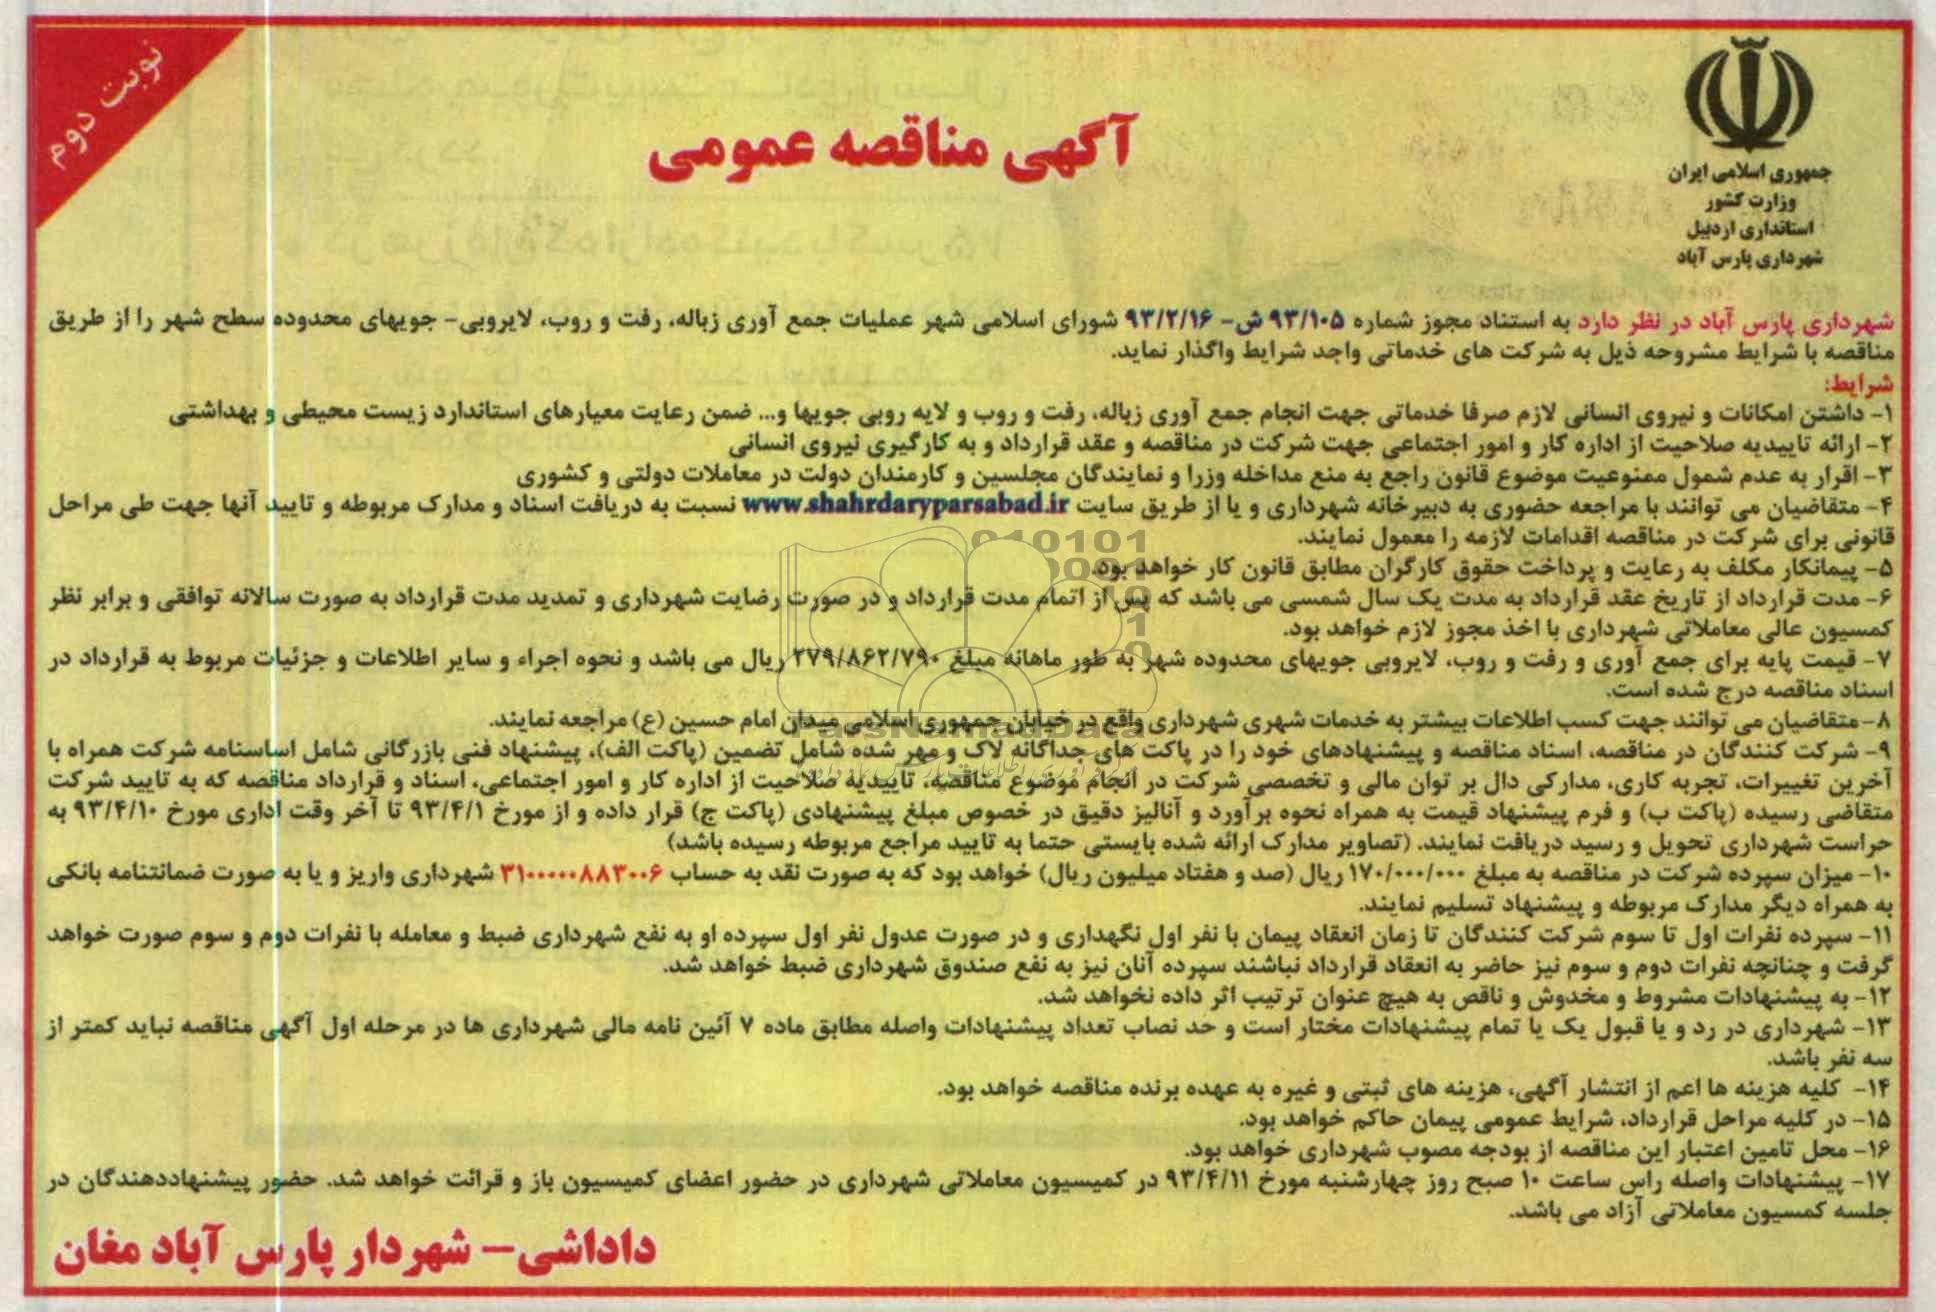 نوبت دوم
جمهوری اسلامی ایران
وزارت کشور
استانداری اردبیل
شهرداری پارس آباد
آگهی مناقصه عمومی
شهرداری پارس آباد در نظر دارد به استناد مجوز شماره ۹۳/۱۰۵ ش- ۹۳/۲/۱۶ شورای اسلامی شهر عملیات جمع آوری زباله، رفت و روب، لایروبی- جویهای محدوده سطح شهر را از طریق
مناقصه با شرایط مشروحه ذیل به شرکت های خدماتی واجد شرایط واگذار نماید.
شرایط:
۱- داشتن امکانات و نیروی انسانی لازم صرفا خدماتی جهت انجام جمع آوری زباله، رفت و روب و لایه روبی جویها و... ضمن رعایت معیارهای استاندارد زیست محیطی و بهداشتی
۲- ارائه تاییدیه صلاحیت از اداره کار و امور اجتماعی جهت شرکت در مناقصه و عقد قرارداد و به کارگیری نیروی انسانی
۳- اقرار به عدم شمول ممنوعیت موضوع قانون راجع به منع مداخله وزرا و نمایندگان مجلسین و کارمندان دولت در معاملات دولتی و کشوری
۴- متقاضیان می توانند با مراجعه حضوری به دبیرخانه شهرداری و یا از طریق سایت www.shahrdaryparsabad.ir نسبت به دریافت اسناد و مدارک مربوطه و تایید آنها جهت طی مراحل
قانونی برای شرکت در مناقصه اقدامات لازمه را معمول نمایند.
۵- پیمانکار مکلف به رعایت و پرداخت حقوق کارگران مطابق قانون کار خواهد بود.
۶- مدت قرارداد از تاریخ عقد قرارداد به مدت یک سال شمسی می باشد که پس از اتمام مدت قرارداد و در صورت رضایت شهرداری و تمدید مدت قرارداد به صورت سالانه توافقی و برابر نظر
کمسیون عالی معاملاتی شهرداری با اخذ مجوز لازم خواهد بود.
۷- قیمت پایه برای جمع آوری و رفت و روب، لایروبی جویهای محدوده شهر به طور ماهانه مبلغ ۲۷۹/۸۶۲/۷۹۰ ریال می باشد و نحوه اجراء و سایر اطلاعات و جزئیات مربوط به قرارداد در
اسناد مناقصه درج شده است.
۸- متقاضیان می توانند جهت کسب اطلاعات بیشتر به خدمات شهری شهرداری واقع در خیابان جمهوری اسلامی میدان امام حسین (ع) مراجعه نمایند.
۹- شرکت کنندگان در مناقصه، اسناد مناقصه و پیشنهادهای خود را در پاکت های جداگانه لاک و مهر شده شامل تضمین (پاکت الف)، پیشنهاد فنی بازرگانی شامل اساسنامه شرکت همراه با
آخرین تغییرات، تجربه کاری، مدارکی دال بر توان مالی و تخصصی شرکت در انجام موضوع مناقصه، تاییدیه صلاحیت از اداره کار و امور اجتماعی، اسناد و قرارداد مناقصه که به تایید شرکت
متقاضی رسیده (پاکت ب) و فرم پیشنهاد قیمت به همراه نحوه برآورد و آنالیز دقیق در خصوص مبلغ پیشنهادی (پاکت ج) قرار داده و از مورخ ۹۳/۴/۱ تا آخر وقت اداری مورخ ۹۳/۴/۱۰ به
حراست شهرداری تحویل و رسید دریافت نمایند. (تصاویر مدارک ارائه شده بایستی حتما به تایید مراجع مربوطه رسیده باشد)
۱۰- میزان سپرده شرکت در مناقصه به مبلغ ۱۷۰/۰۰۰/۰۰۰ ریال (صد و هفتاد میلیون ریال) خواهد بود که به صورت نقد به حساب ۳۱۰۰۰۰۰۸۸۳۰۰۶ شهرداری واریز و یا به صورت ضمانتنامه بانکی
به همراه دیگر مدارک مربوطه و پیشنهاد تسلیم نمایند.
۱۱- سپرده نفرات اول تا سوم شرکت کنندگان تا زمان انعقاد پیمان با نفر اول نگهداری و در صورت عدول نفر اول سپرده او به نفع شهرداری ضبط و معامله با نفرات دوم و سوم صورت خواهد
گرفت و چنانچه نفرات دوم و سوم نیز حاضر به انعقاد قرارداد نباشند سپرده آنان نیز به نفع صندوق شهرداری ضبط خواهد شد.
۱۲- به پیشنهادات مشروط و مخدوش و ناقص به هیچ عنوان ترتیب اثر داده نخواهد شد.
۱۳- شهرداری در رد و یا قبول یک یا تمام پیشنهادات مختار است و حد نصاب تعداد پیشنهادات واصله مطابق ماده ۷ آئین نامه مالی شهرداری ها در مرحله اول آگهی مناقصه نباید کمتر از
سه نفر باشد.
۱۴- کلیه هزینه ها اعم از انتشار آگهی، هزینه های ثبتی و غیره به عهده برنده مناقصه خواهد بود.
۱۵- در کلیه مراحل قرارداد، شرایط عمومی پیمان حاکم خواهد بود.
۱۶- محل تامین اعتبار این مناقصه از بودجه مصوب شهرداری خواهد بود.
۱۷- پیشنهادات واصله راس ساعت ۱۰ صبح روز چهارشنبه مورخ ۹۳/۴/۱۱ در کمیسیون معاملاتی شهرداری در حضور اعضای کمیسیون باز و قرائت خواهد شد. حضور پیشنهاددهندگان در
جلسه کمسیون معاملاتی آزاد می باشد.
داداشی- شهردار پارس آباد مغان
ParsNamadData